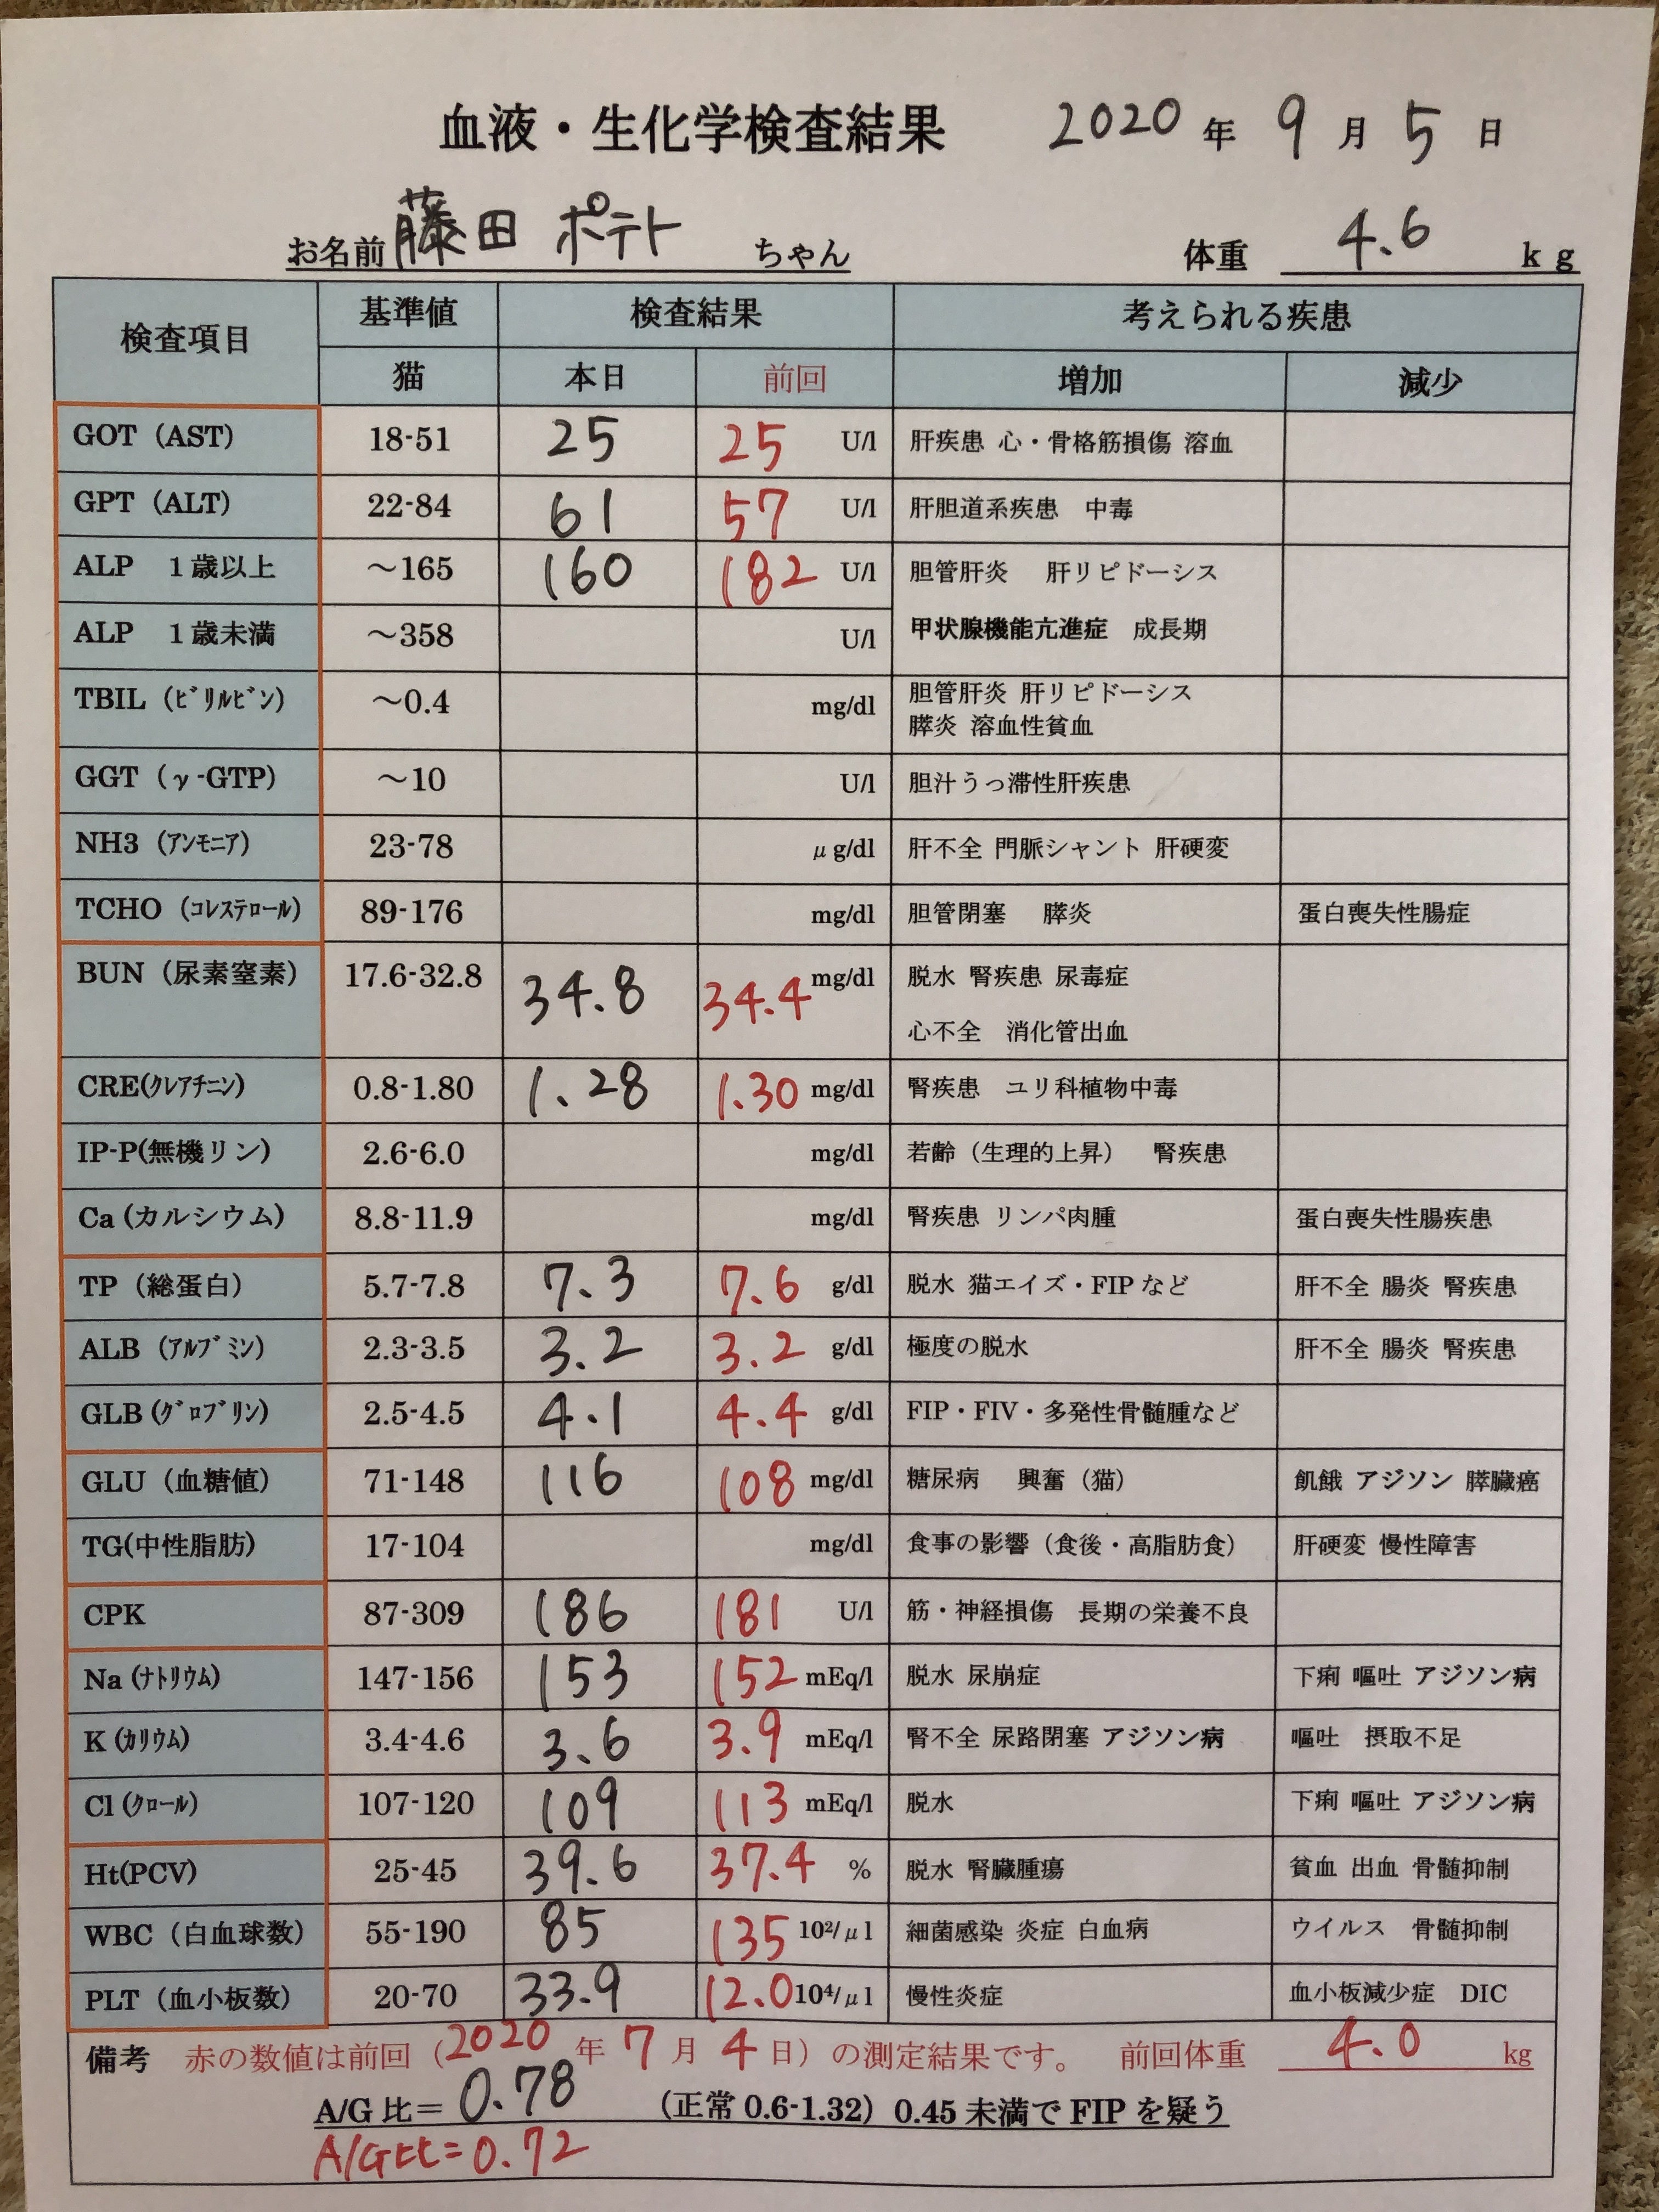 血液・生化学検査結果 2020 年 9 月 5 日
お名前 藤田 ポテト ちゃん 体重 4.6 kg
検査項目 基準値 検査結果 考えられる疾患
猫 本日 前回 増加 減少
GOT（AST） 18-51 25 25 U/l 肝疾患 心・骨格筋損傷 溶血
GPT（ALT） 22-84 61 57 U/l 肝胆道系疾患 中毒
ALP １歳以上 ～165 160 182 U/l 胆管肝炎 肝リピドーシス
ALP １歳未満 ～358 U/l 甲状腺機能亢進症 成長期
TBIL（ﾋﾞﾘﾙﾋﾞﾝ） ～0.4 mg/dl 胆管肝炎 肝リピドーシス
膵炎 溶血性貧血
GGT（γ-GTP） ～10 U/l 胆汁うっ滞性肝疾患
NH3（ｱﾝﾓﾆｱ） 23-78 μg/dl 肝不全 門脈シャント 肝硬変
TCHO（ｺﾚｽﾃﾛｰﾙ） 89-176 mg/dl 胆管閉塞 膵炎 蛋白喪失性腸症
BUN（尿素窒素） 17.6-32.8 34.8 34.4 mg/dl 脱水 腎疾患 尿毒症
心不全 消化管出血
CRE(ｸﾚｱﾁﾆﾝ) 0.8-1.80 1.28 1.30 mg/dl 腎疾患 ユリ科植物中毒
IP-P(無機リン) 2.6-6.0 mg/dl 若齢（生理的上昇） 腎疾患
Ca(カルシウム) 8.8-11.9 mg/dl 腎疾患 リンパ肉腫 蛋白喪失性腸疾患
TP（総蛋白） 5.7-7.8 7.3 7.6 g/dl 脱水 猫エイズ・FIPなど 肝不全 腸炎 腎疾患
ALB（ｱﾙﾌﾞﾐﾝ） 2.3-3.5 3.2 3.2 g/dl 極度の脱水 肝不全 腸炎 腎疾患
GLB(ｸﾞﾛﾌﾞﾘﾝ) 2.5-4.5 4.1 4.4 g/dl FIP・FIV・多発性骨髄腫など
GLU（血糖値） 71-148 116 108 mg/dl 糖尿病 興奮（猫） 飢餓 アジソン 膵臓癌
TG(中性脂肪) 17-104 mg/dl 食事の影響（食後・高脂肪食） 肝硬変 慢性障害
CPK 87-309 186 181 U/l 筋・神経損傷 長期の栄養不良
Na(ﾅﾄﾘｳﾑ) 147-156 153 152 mEq/l 脱水 尿崩症 下痢 嘔吐 アジソン病
K(ｶﾘｳﾑ) 3.4-4.6 3.6 3.9 mEq/l 腎不全 尿路閉塞 アジソン病 嘔吐 摂取不足
Cl(ｸﾛｰﾙ) 107-120 109 113 mEq/l 脱水 下痢 嘔吐 アジソン病
Ht(PCV) 25-45 39.6 37.4 % 脱水 腎臓腫瘍 貧血 出血 骨髄抑制
WBC（白血球数） 55-190 85 135 10²/μl 細菌感染 炎症 白血病 ウイルス 骨髄抑制
PLT（血小板数） 20-70 33.9 12.0 10⁴/μl 慢性炎症 血小板減少症 DIC
備考 赤の数値は前回（2020 年 7 月 4 日）の測定結果です。 前回体重 4.0 kg
A/G 比＝ 0.78 （正常 0.6-1.32）0.45 未満で FIP を疑う
A/G比=0.72